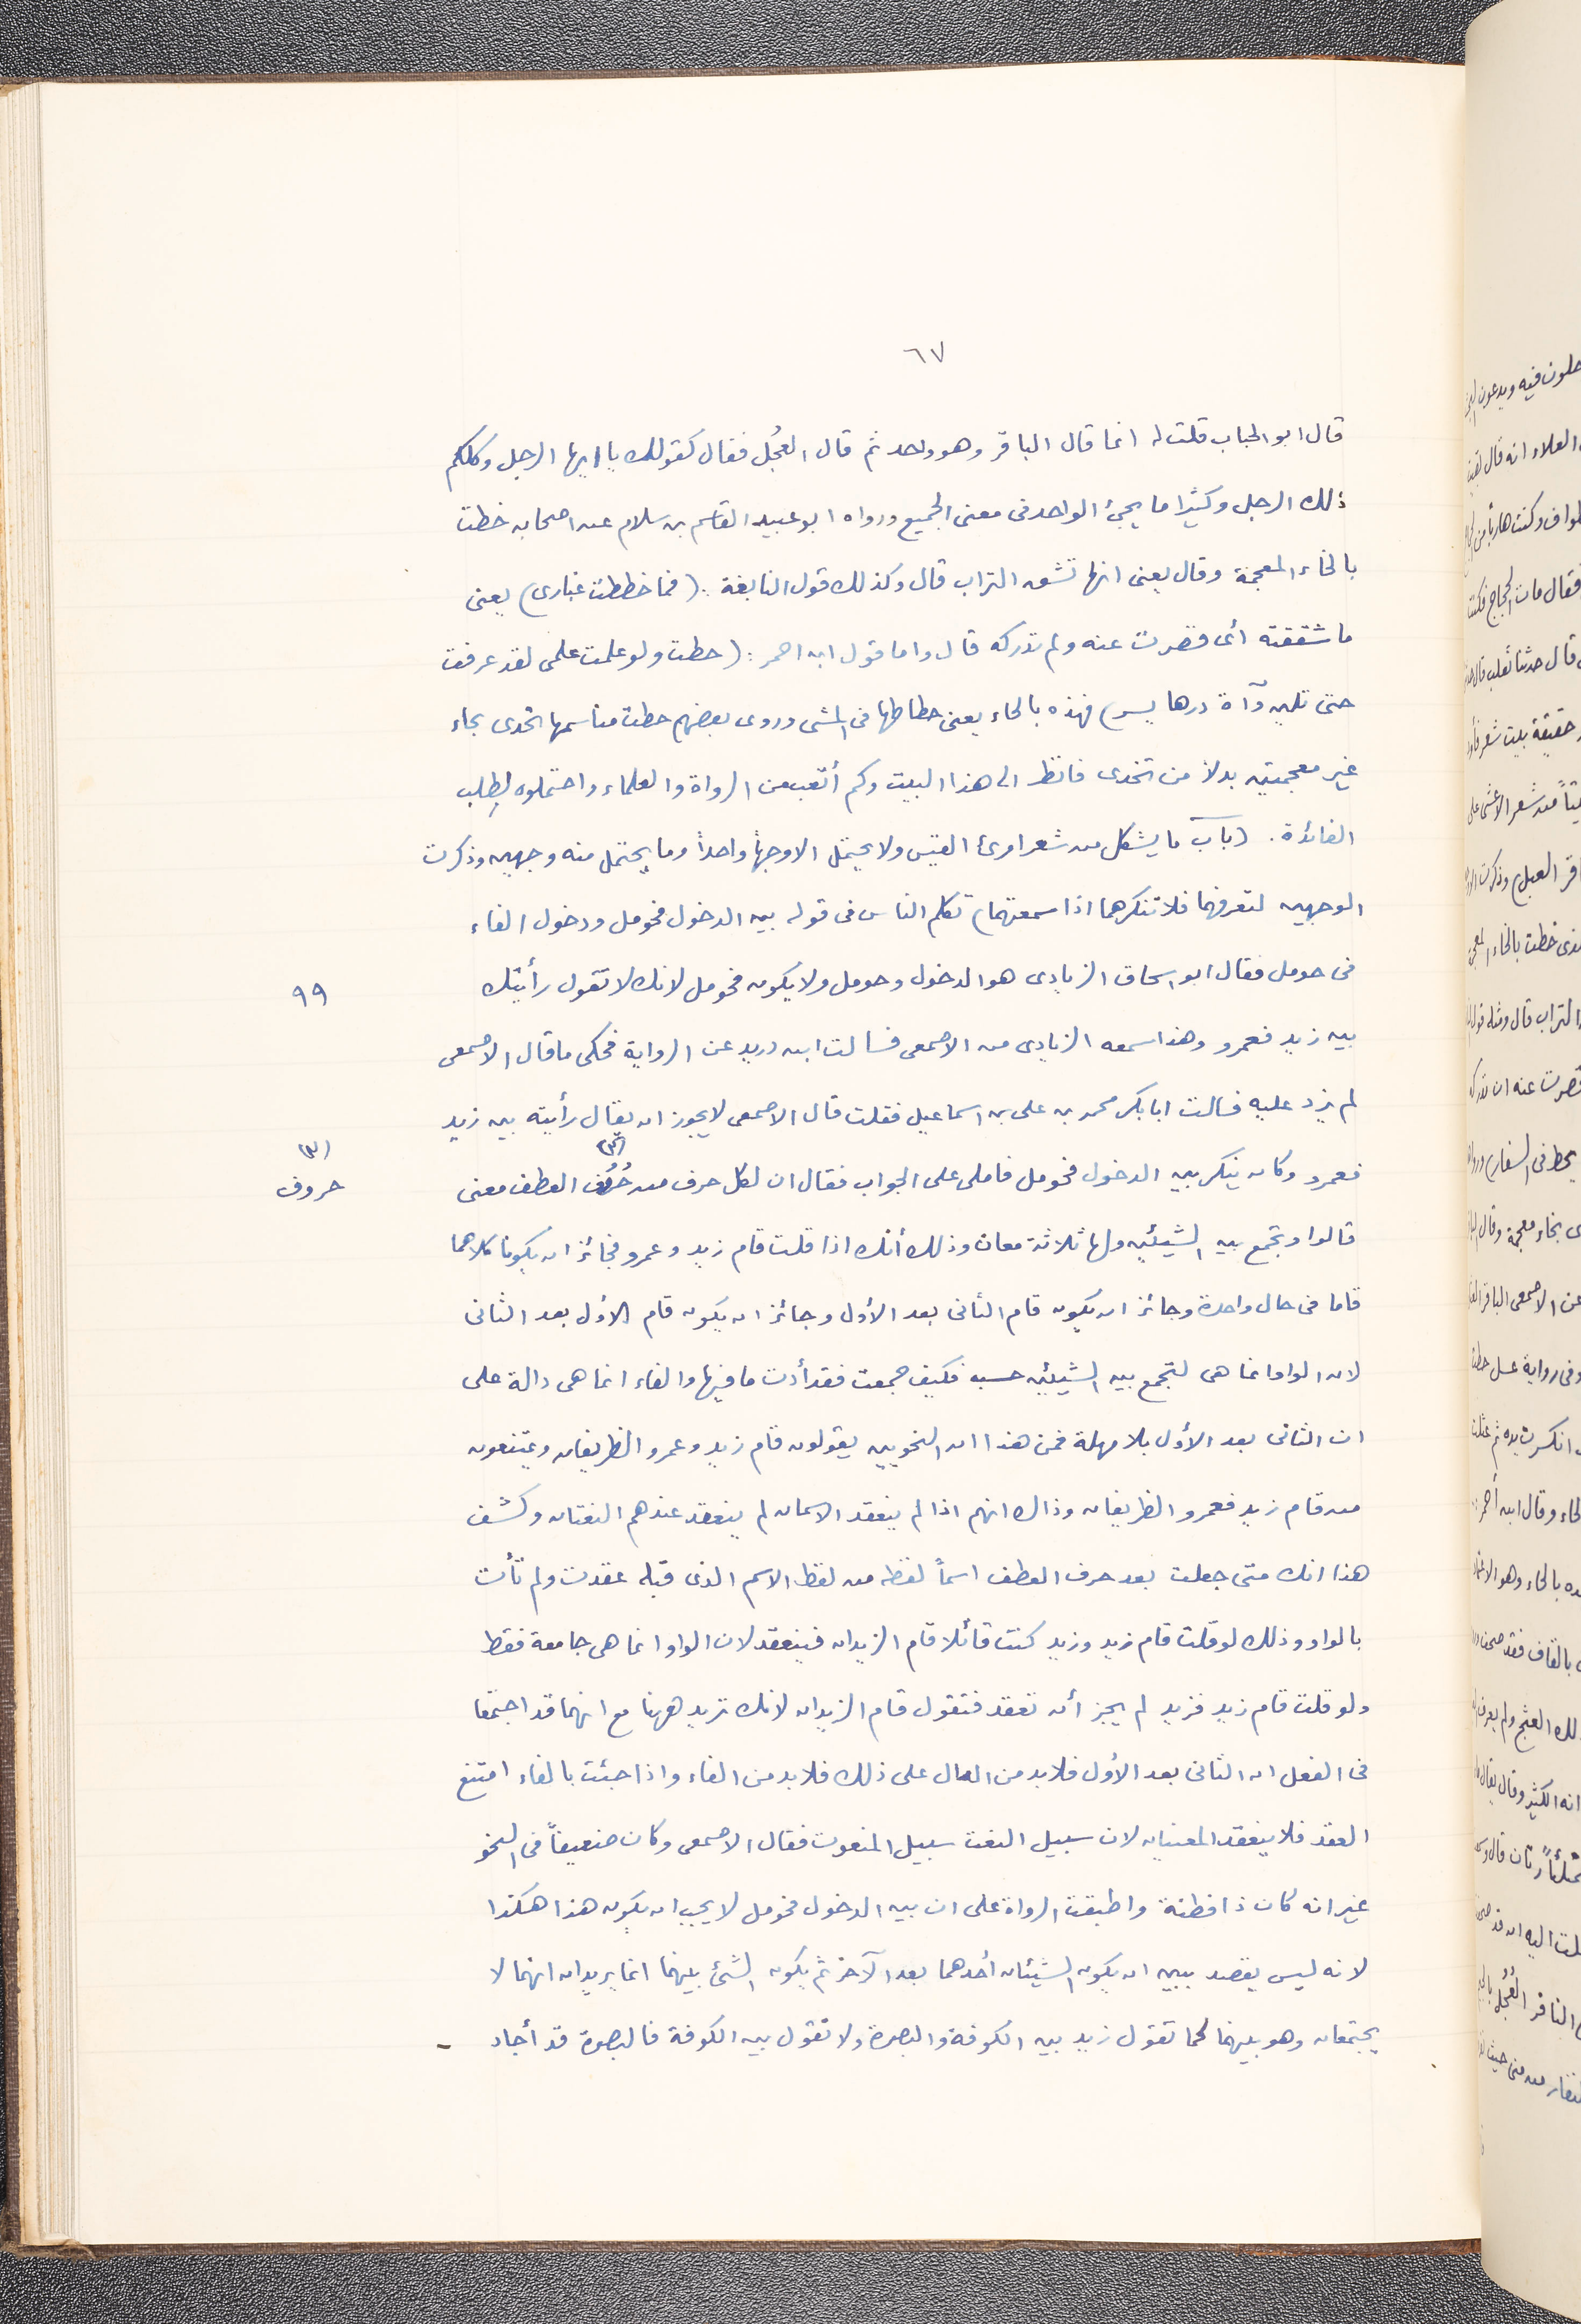 ٦٧
قال ابو الحباب قلت له انما قال الباقر وهو واحد ثم قال العُجُل فقال كقولك يا ايها الرجل وكلكم
ذلك الرجل وكثيرا ما يجئ الواحد فى معنى الجميع ورواه ابو عبيد القاسم بن سلام عن اصحابه خطت
بالخاء المعجمة وقال يعنى انها تشق التراب قال وكذلك قول النابغة : (فما خططت غبارى) يعنى
ما شققته أى قصرت عنه ولم تدركه قال واما قول ابن احمر : (حطت ولو علمت علمى لقد عرفت
حتى تلين درها يسر) فهذه بالحاء يعنى حطاطها فى المشى وروى بعضهم حطت مناسمها تحدى بحاء
غير معجمتين بدلا من تخدى فانظر الى هذا البيت وكم أتعب من الرواة والعلماء واحتملوه لطلب
الفائدة . (باب ما يشكل من شعر امرئ القيس ولا يحتمل الا وجهاً واحداً وما يحتمل منه وجهين وذكرت
الوجهين لتعرفهما فلا تنكرهما اذا سمعتهما) تكلم الناس فى قوله بين الدخول فحومل ودخول الفاء
فى حومل فقال ابو اسحاق الزيادى هو الدخول وحومل ولا يكون فحومل لانك لا تقول رأيتك
٩٩
بين زيد فعمرو وهذا سمعه الزيادى من الاصمعى فسالت ابن دريد عن الرواية فحكى ما قال الاصمعى
لم يزد عليه فسالت ابا بكر محمد بن على بن اسماعيل فقلت قال الاصمعى لا يجوز ان يقال رأيته بين زيد
فعمرو وكان ينكر بين الدخول فحومل فاملى على الجواب فقال ان لكل حرف من حُرُف (٣) العطف معنى
(٣)
حروف
قالوا وتجمع بين الشيئين ولها ثلاثة معان وذلك أنك اذا قلت قام زيد وعمرو فجائز ان يكونا كلاهما
قاما فى حال واحدة وجائز ان يكون قام الثانى بعد الأول وجائز ان يكون قام الأول بعد الثانى
لان الواو انما هى لتجمع بين الشيئين حسب فكيف جمعت فقد أدت ما فيها والفاء انما هى دالة على
ان الثانى بعد الأول بلا مهلة فمن هذا ان النحويين يقولون قام زيد وعمرو الظريفان ويمتنعون
من قام زيد فعمرو الظريفان وذاك انهم اذا لم ينعقد الاسمان لم ينعقد عندهم النعتان وكشف
هذا انك متى جعلت بعد حرف العطف اسماً لفظه من لفظ الاسم الذى قبله عقدت ولم تأت
بالواو وذلك لو قلت قام زيد وزيد كنت قائلا قام الزيدان فينعقد لان الواو انما هى جامعة فقط
ولو قلت قام زيد فزيد لم يجز أن تعقد فتقول قام الزيدان لانك تريد ههنا مع انهما قد اجتمعا
فى الفعل ان الثانى بعد الأول فلا بد من الدال على ذلك فلا بد من الفاء واذا جئت بالفاء امتنع
العقد فلا ينعقد المعنيان لان سبيل النعت سبيل المنعوت فقال الاصمعى وكان ضعيفاً فى النحو
غير انه كان ذا فطنة واطبقت الرواة على ان بين الدخول فحومل لا يجب ان يكون هذا هكذا
لانه ليس يقصد ببين ان يكون الشيئان أحدهما بعد الآخر ثم يكون الشئ بينهما انما يريدان انهما لا
يجتمعان وهو بينهما كما تقول زيد بين الكوفة والبصرة ولا تقول بين الكوفة فالبصرة قد أجاد -